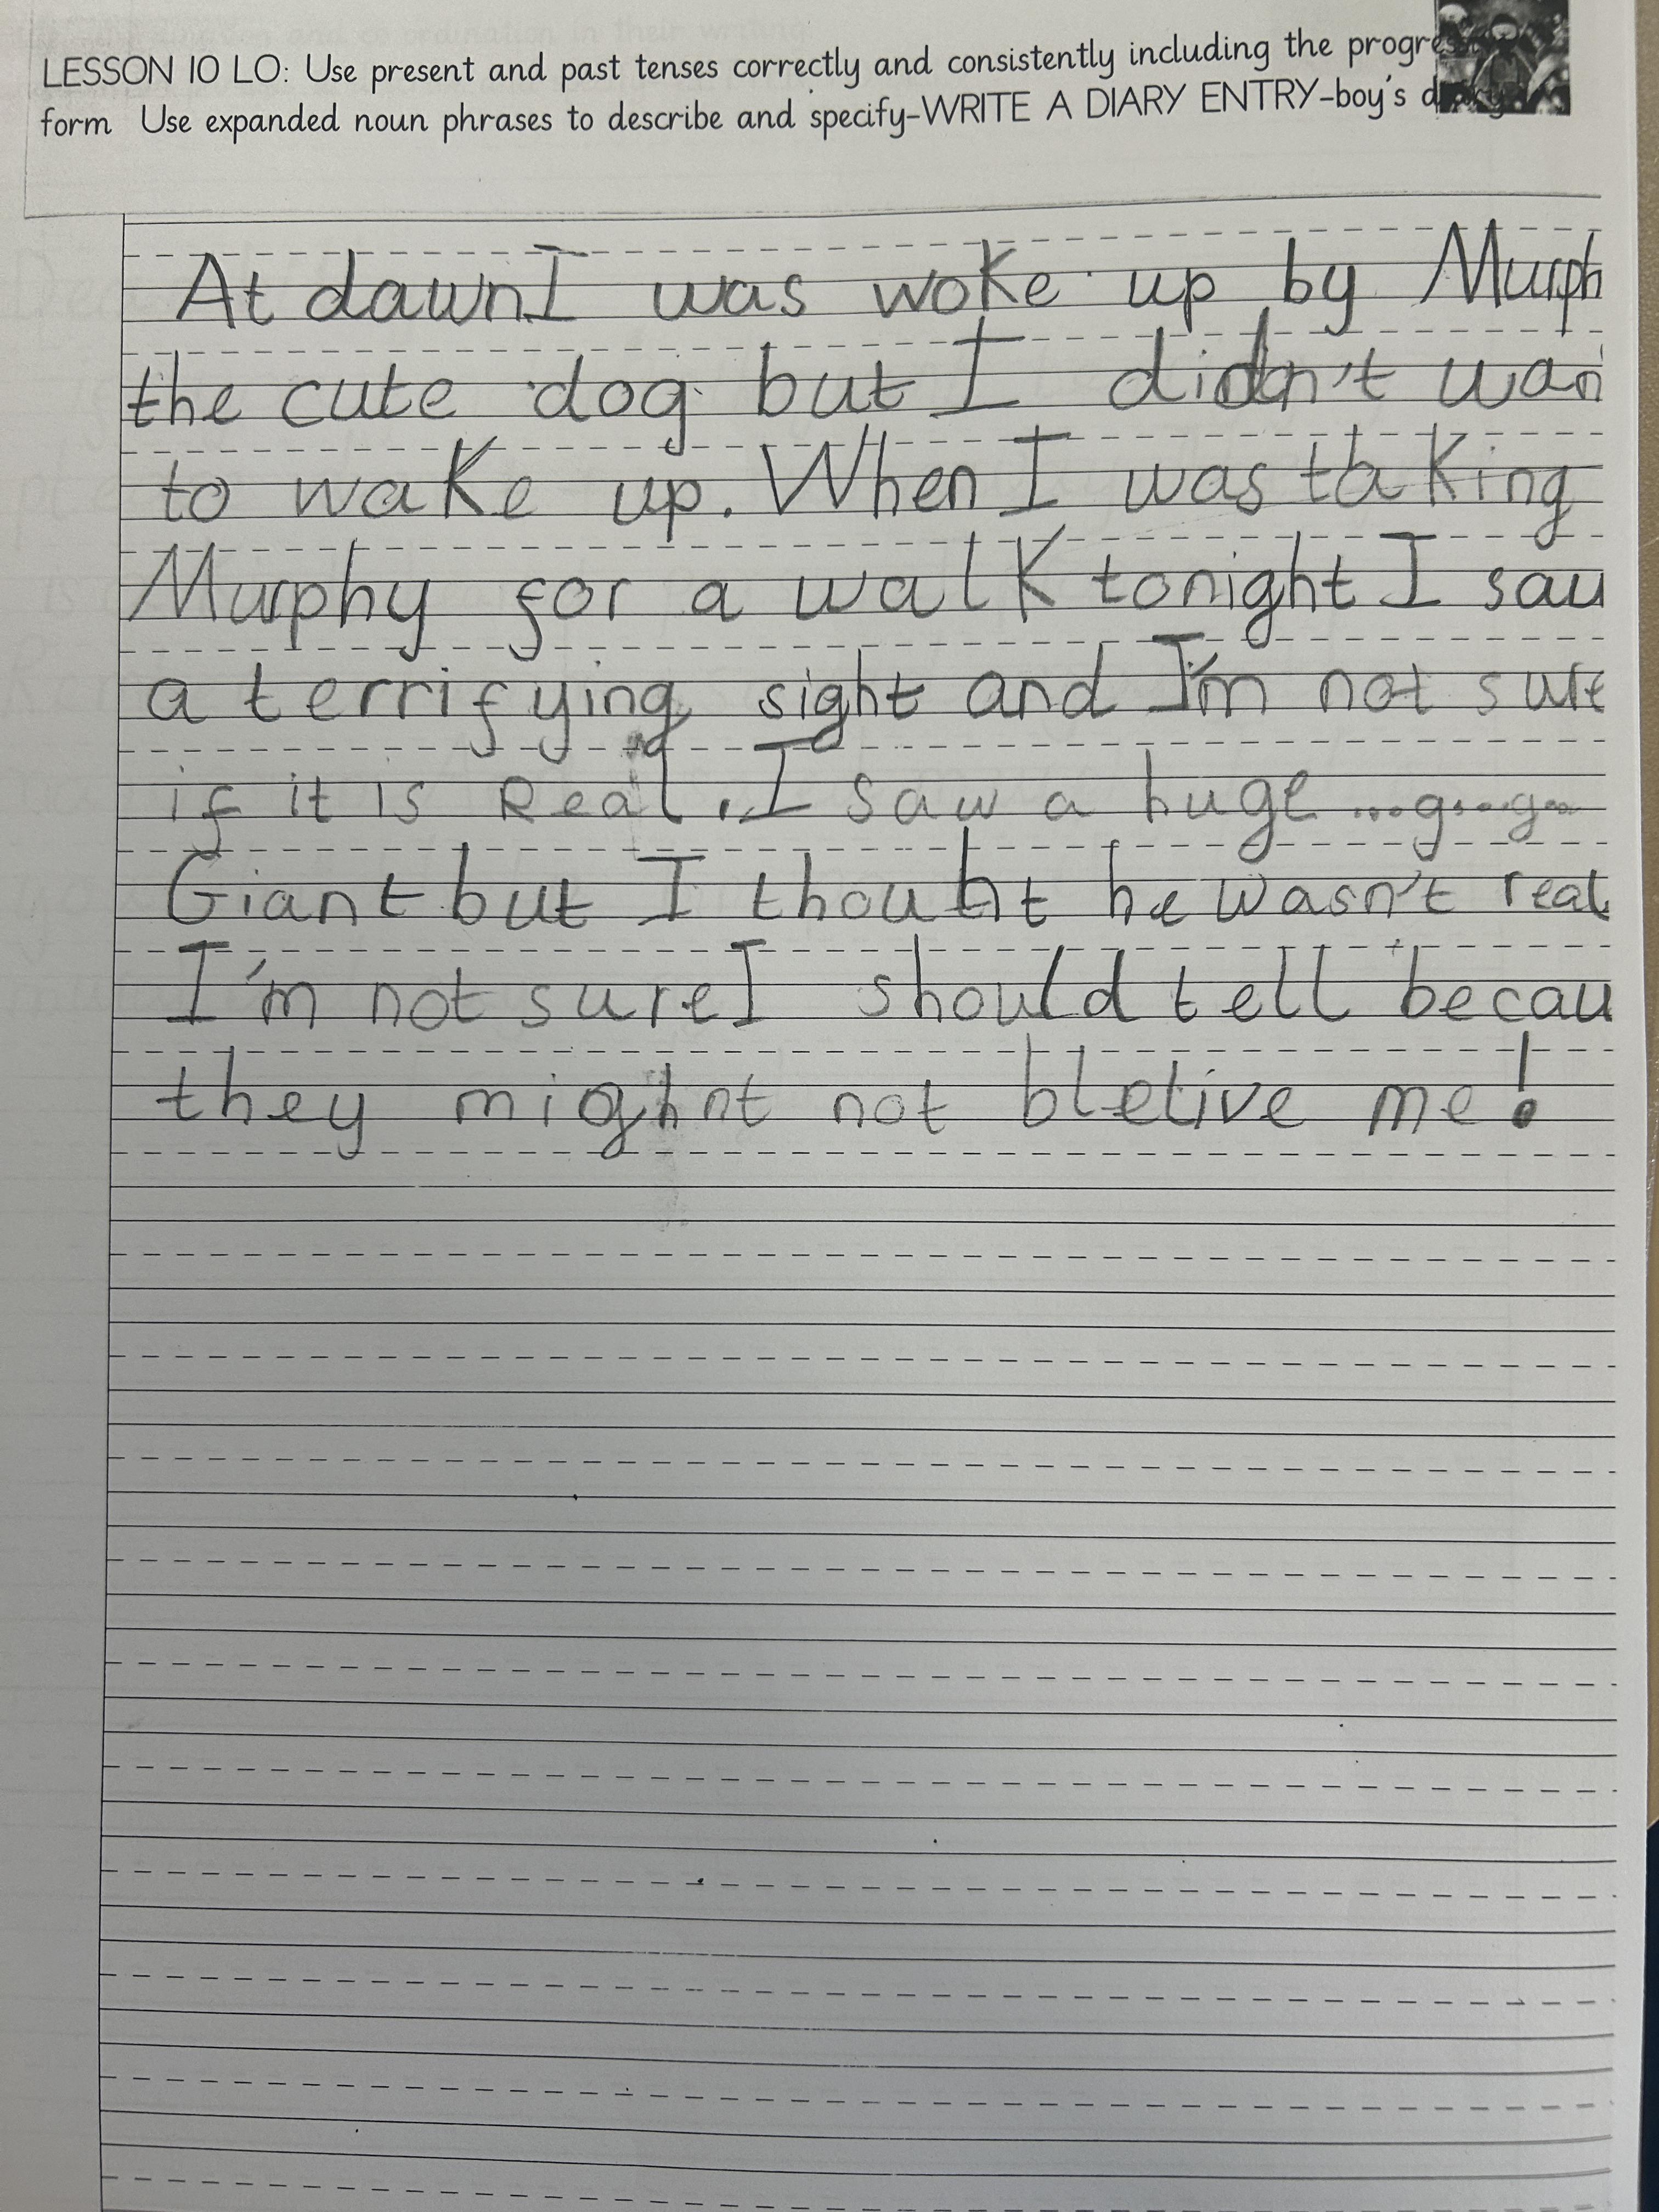 LESSON 10 LO: Use present and past tenses correctly and consistently including the progre
form Use expanded noun phrases to describe and specify-WRITE A DIARY ENTRY-boy's
At dawn I was woke up by Murph
the cute dog but I didn't wan
to wake up. When I was taking
Murphy for a walk tonight I saw
a terrifying sight and I'm not sure
if it is Real. I saw a huge ...g...g...
Giant but I thouht he wasn't real
I'm not sure I should tell becau
they might not bleive me!